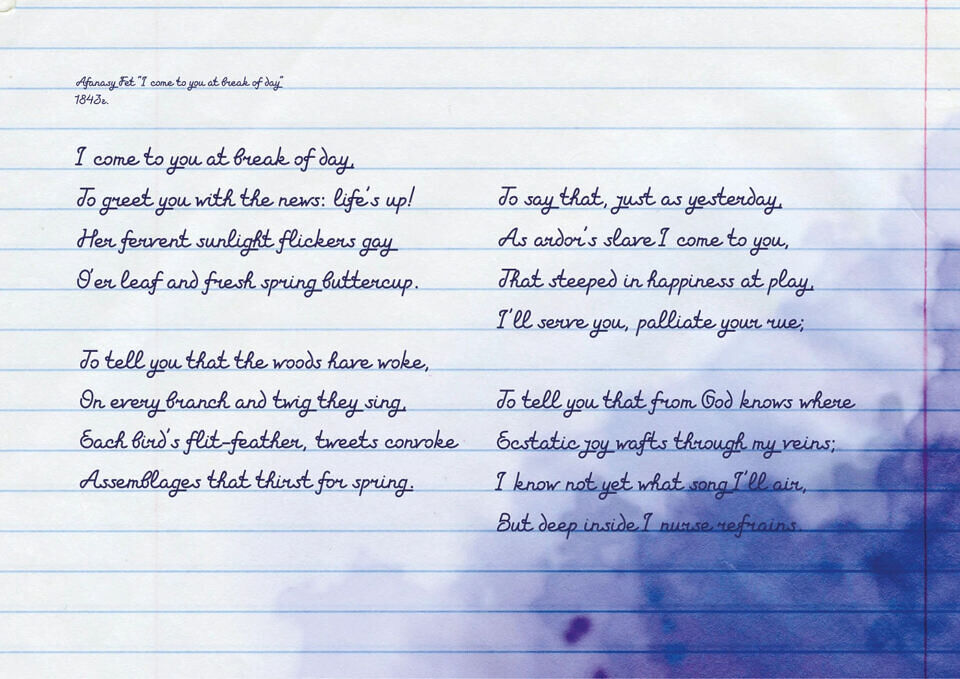 Afanasy Fet "I come to you at break of day"
1843г.
I come to you at break of day,
To greet you with the news: life's up!
Her fervent sunlight flickers gay
O'er leaf and fresh spring buttercup.
To tell you that the woods have woke,
On every branch and twig they sing,
Each bird's flit-feather, tweets convoke
Assemblages that thirst for spring.
To say that, just as yesterday,
As ardor's slave I come to you,
That steeped in happiness at play,
I'll serve you, palliate your rue;
To tell you that from God knows where
Ecstatic joy wafts through my veins;
I know not yet what song I'll air,
But deep inside I nurse refrains.